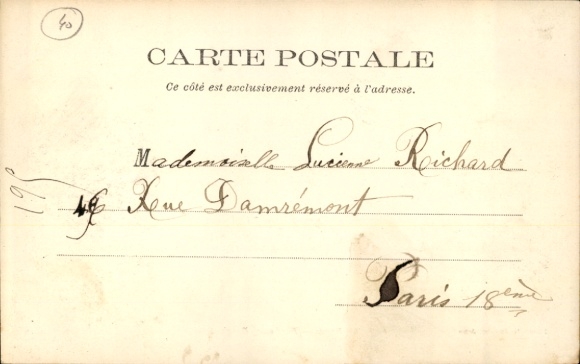 40
CARTE POSTALE
Ce côté est exclusivement réservé à l'adresse.
Mademoiselle Lucienne Richard
Rue Damrémont
Paris 18ème